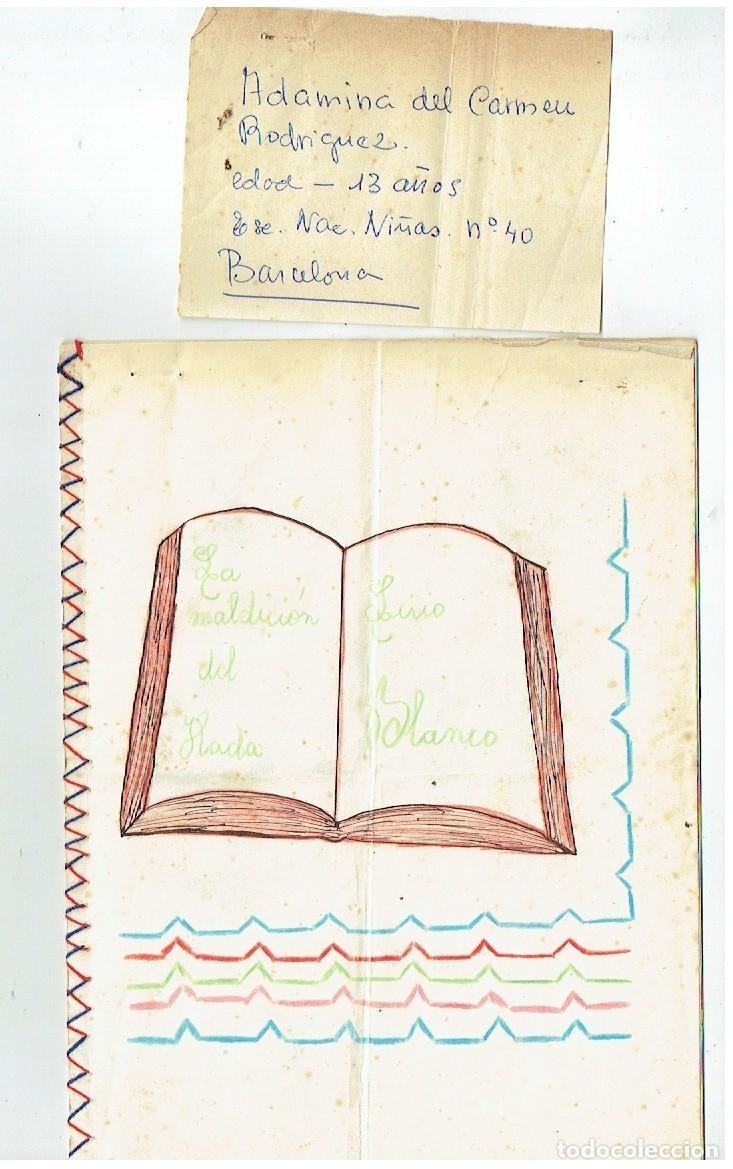 Adamina del Carmen
Rodriguez.
edad - 13 años
Esc. Nac. Niñas. nº 40
Barcelona
La
maldición
del
Hada
Lirio
Blanco
todocoleccion